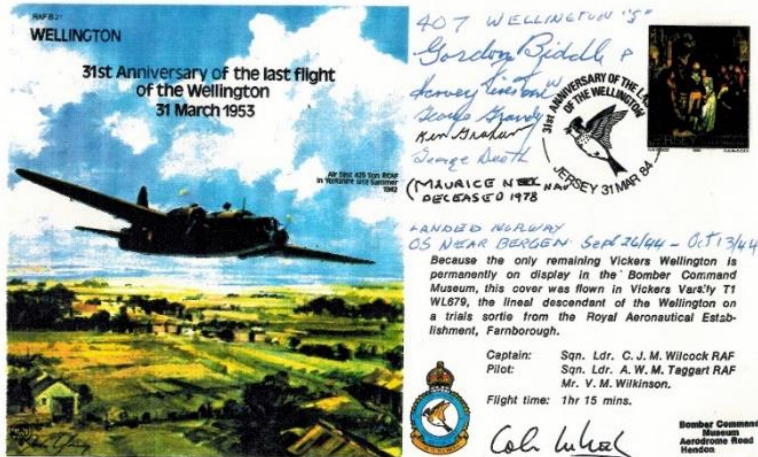 RAF B 21
WELLINGTON
31st Anniversary of the last flight
of the Wellington
31 March 1953
Air Test 425 Sqn RCAF
in Yorkshire late Summer
1942
407 WELLINGTON "S"
Gordon Biddle P
Harvey
George Grandy
Ken Graham
George Death
(MAURICE NEIL NAV
DECEASED 1978
31st ANNIVERSARY OF THE LAS
OF THE WELLINGTON
JERSEY 31 MAR 84
JERSEY
LANDED NORWAY
OS NEAR BERGEN Sept 26/44 - Oct 13/44
Because the only remaining Vickers Wellington is
permanently on display in the Bomber Command
Museum, this cover was flown in Vickers Varsity T1
WL679, the lineal descendant of the Wellington on
a trials sortie from the Royal Aeronautical Estab-
lishment, Farnborough.
Captain: Sqn. Ldr. C. J. M. Wilcock RAF
Pilot: Sqn. Ldr. A. W. M. Taggart RAF
Mr. V. M. Wilkinson.
Flight time: 1hr 15 mins.
Bomber Command
Museum
Aerodrome Road
Hendon